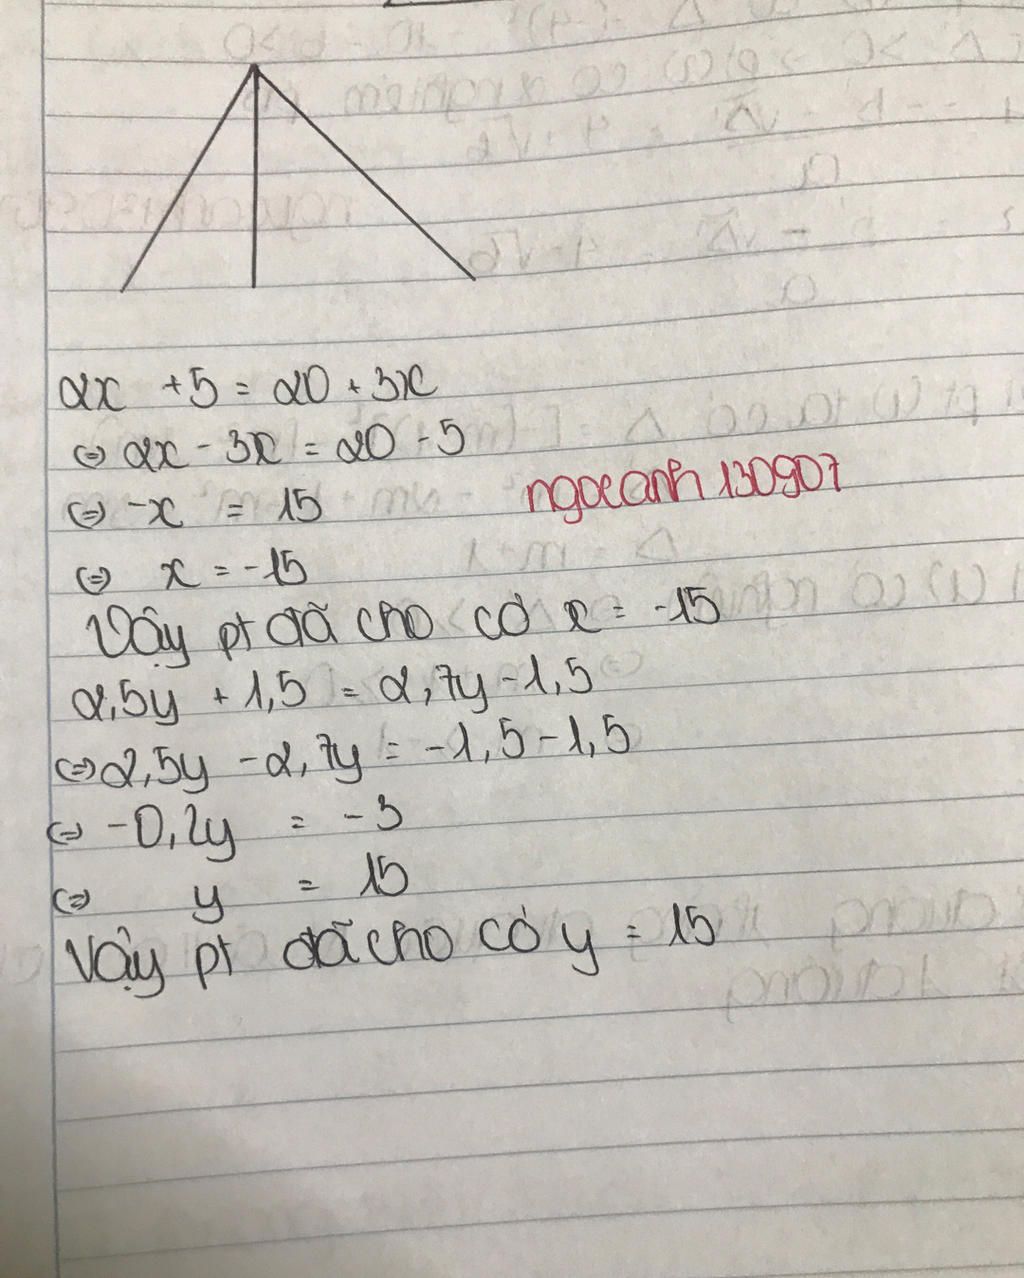 2x + 5 = 20 + 3x
⇔ 2x - 3x = 20 - 5
⇔ -x = 15
ngocanh130907
⇔ x = -15
Vậy pt đã cho có x = -15
2,5y + 1,5 = 2,7y - 1,5
⇔ 2,5y - 2,7y = -1,5 - 1,5
⇔ -0,2y = -3
⇔ y = 15
Vậy pt đã cho có y = 15